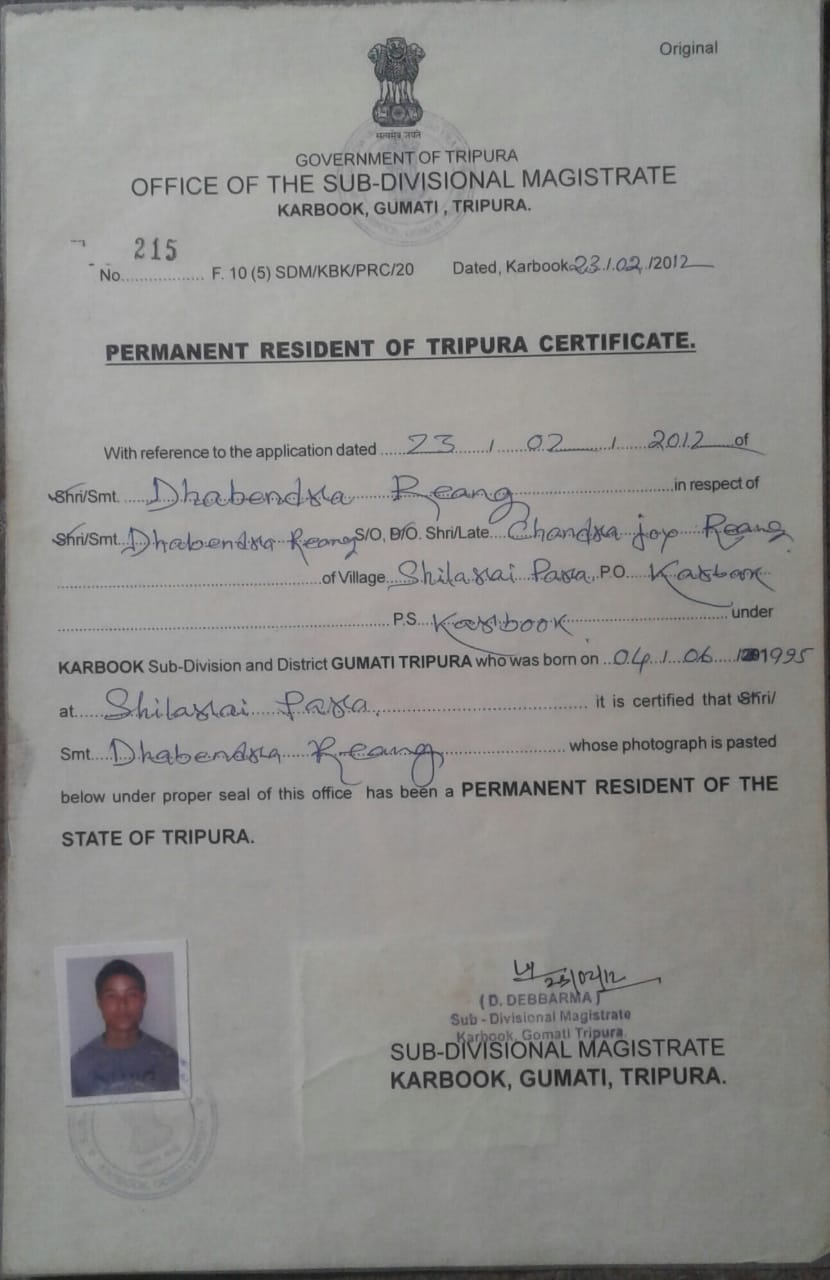 Original
सत्यमेव जयते
GOVERNMENT OF TRIPURA
OFFICE OF THE SUB-DIVISIONAL MAGISTRATE
KARBOOK, GUMATI , TRIPURA.
215
No.................. F. 10 (5) SDM/KBK/PRC/20 Dated, Karbook 23/02/2012
PERMANENT RESIDENT OF TRIPURA CERTIFICATE.
With reference to the application dated ..... 23 / 02 / 2012 of
Shri/Smt. Dhabendra Reang in respect of
Shri/Smt. Dhabendra Reang S/O, D/O. Shri/Late. Chandra joy Reang
of Village Shilarai Para, P.O. Karbook
P.S. Karbook under
KARBOOK Sub-Division and District GUMATI TRIPURA who was born on 04 / 06 / 1995
at Shilarai Para it is certified that Shri/
Smt. Dhabendra Reang whose photograph is pasted
below under proper seal of this office has been a PERMANENT RESIDENT OF THE
STATE OF TRIPURA.
23/02/12
( D. DEBBARMA )
Sub - Divisional Magistrate
Karbook, Gomati Tripura.
SUB-DIVISIONAL MAGISTRATE
KARBOOK, GUMATI, TRIPURA.